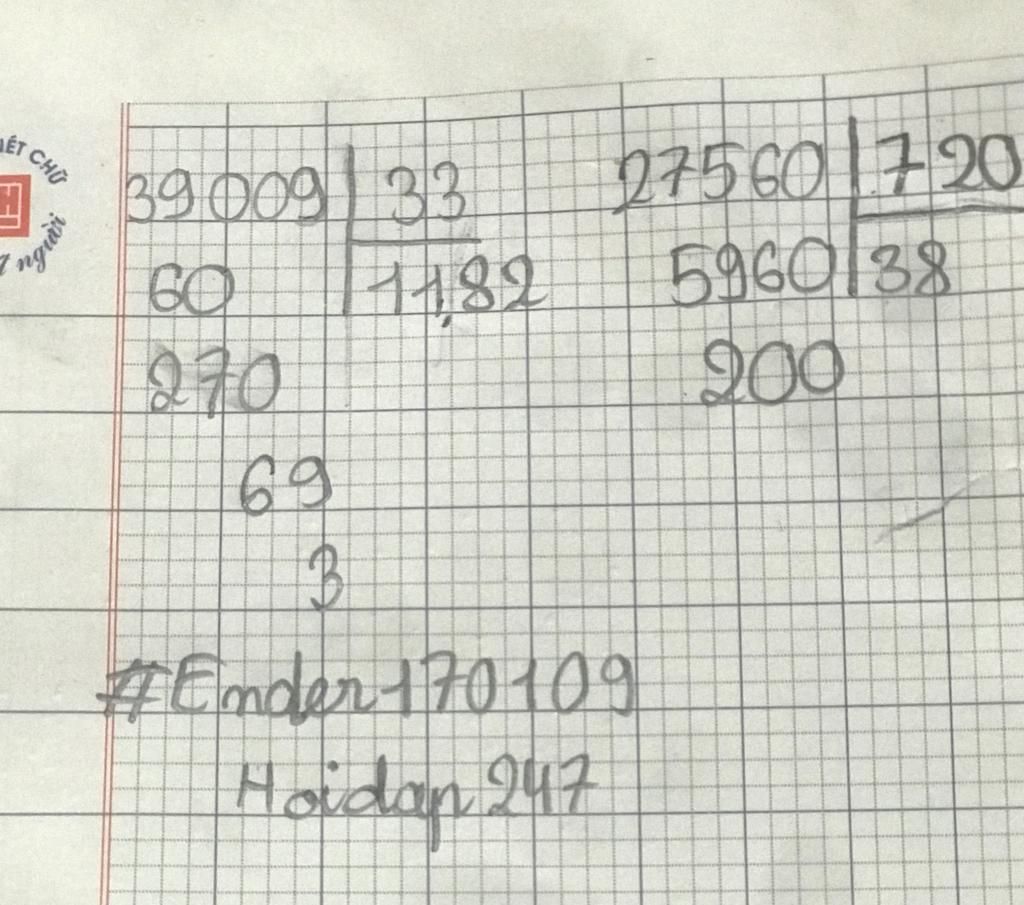 39009 33 27560 720
60 11,82 5960 38
270 200
69
3
#Ender170109
Hoidap247
IẾT CHỮ
người